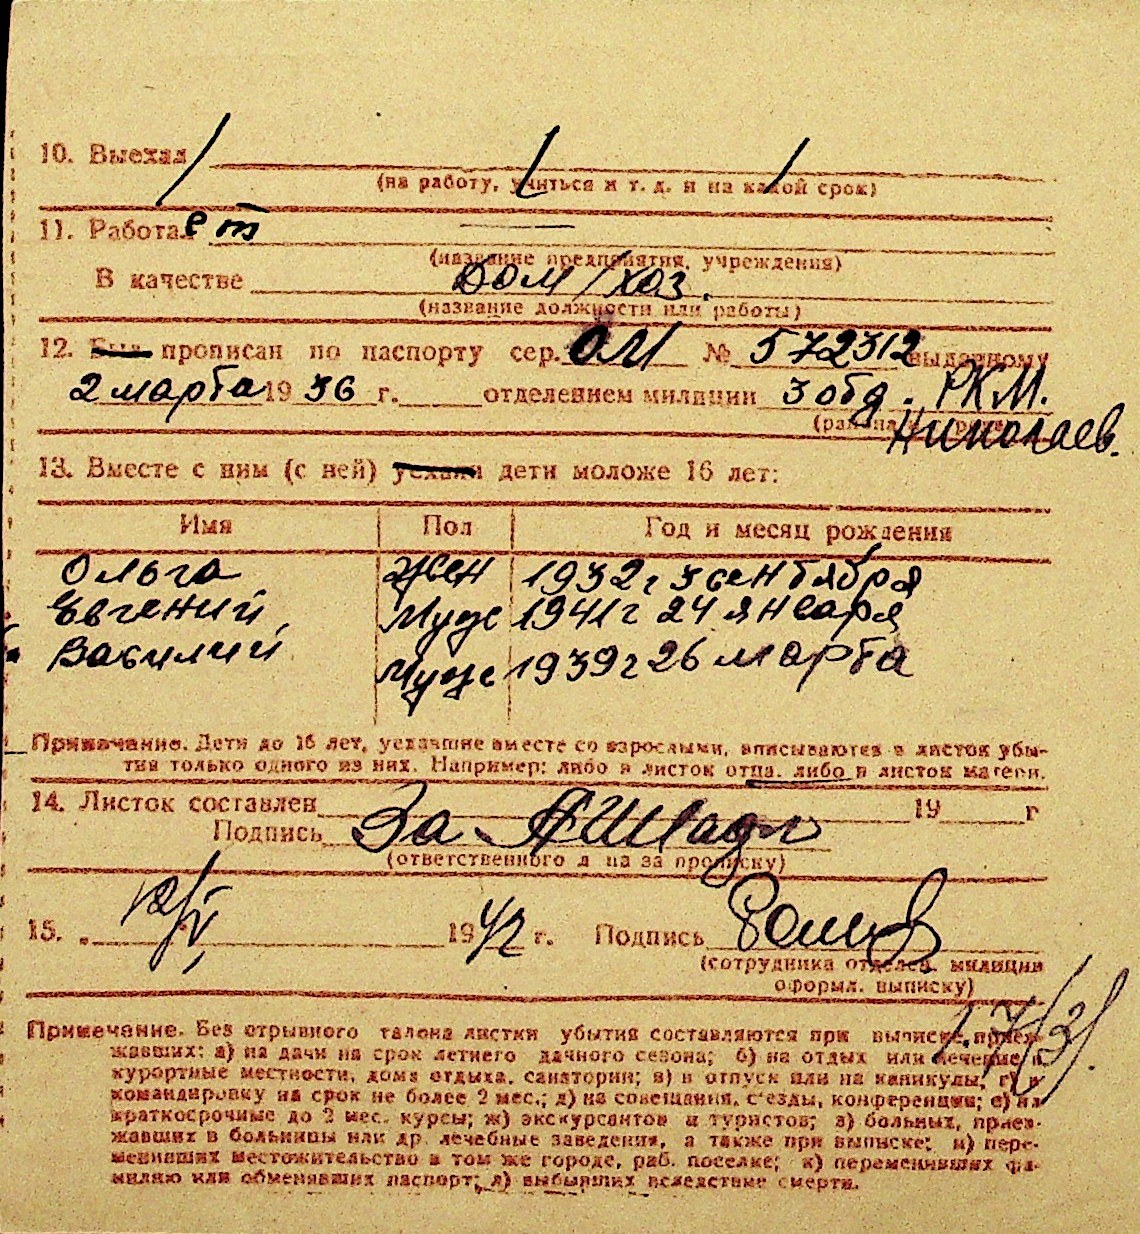 10. Выехал
(на работу, учиться и т. д. и на какой срок)
11. Работал ет
(название предприятия, учреждения)
В качестве дом/хоз.
(название должности или работы)
12. Был прописан по паспорту сер. ОМ № 572312 выданному
2 марта 1936 г. отделением милиции 3 обд. РКМ.
(района
Николаев.
13. Вместе с ним (с ней) уехали дети моложе 16 лет:
Имя Пол Год и месяц рождения
Ольга Жен 1932 г 3 сентября
Евгений Муж 1941 г 24 января
Василий Муж 1939 г 26 марта
Примечание. Дети до 16 лет, уехавшие вместе со взрослыми, вписываются в листок убы-
тия только одного из них. Например: либо в листок отца, либо в листок матери.
14. Листок составлен 19 г
Подпись За
(ответственного л ца за прописку)
15. 12/V 1942 г. Подпись
(сотрудника отделен. милиции
оформл. выписку)
17/3
Примечание. Без отрывного талона листки убытия составляются при выписке, приез-
жавших: а) на дачи на срок летнего дачного сезона; б) на отдых или лечение в
курортные местности, дома отдыха, санатории; в) в отпуск или на каникулы; г) в
командировку на срок не более 2 мес.; д) на совещания, с'езды, конференции; е) на
краткосрочные до 2 мес. курсы; ж) экскурсантов и туристов; з) больных, приез-
жавших в больницы или др. лечебные заведения, а также при выписке; и) пере-
менивших местожительство в том же городе, раб. поселке; к) переменивших фа-
милию или обменявших паспорт; л) выбывших вследствие смерти.